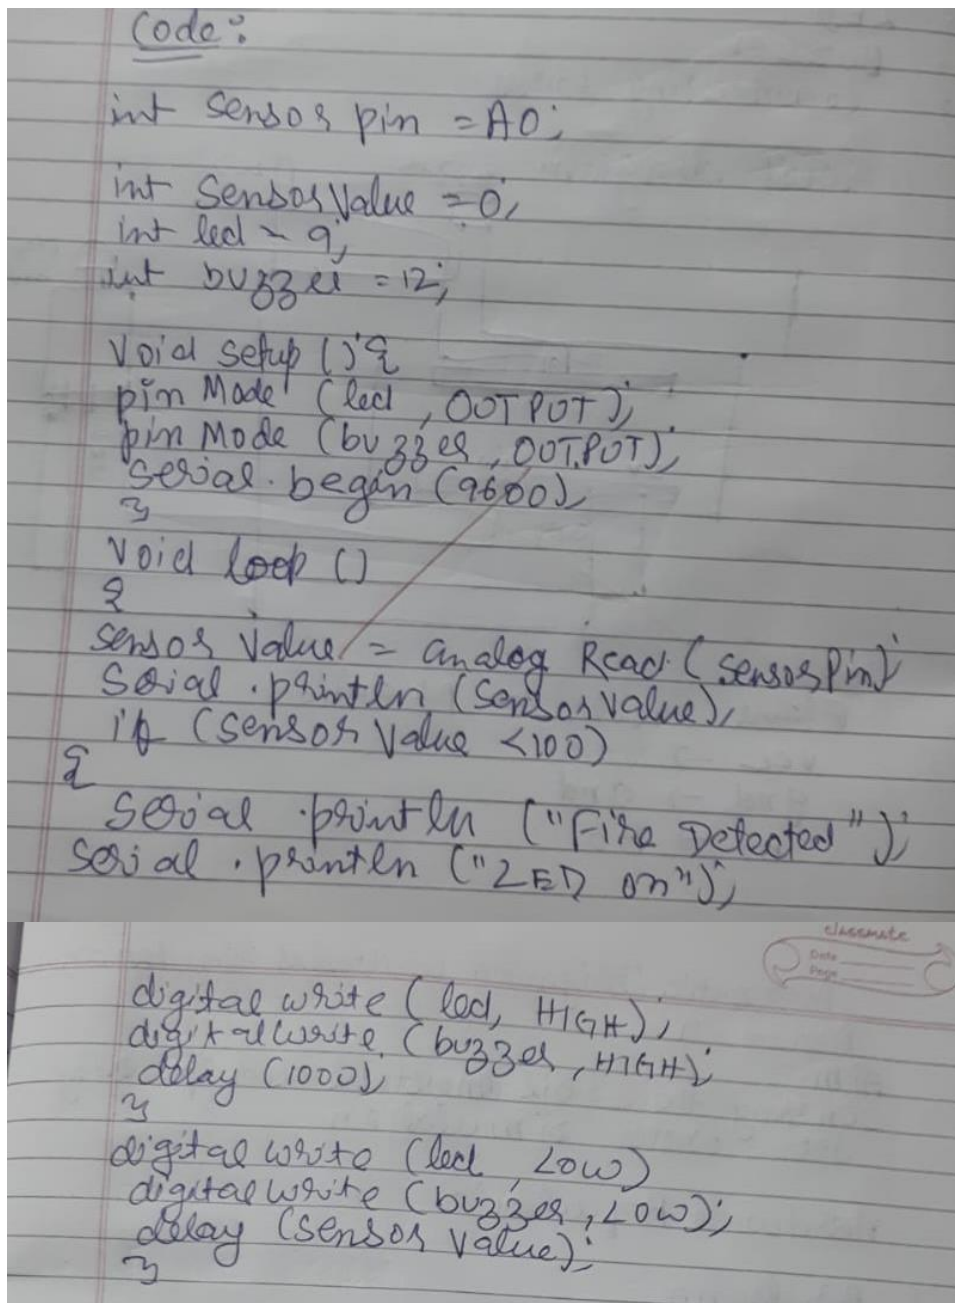 Code:
int Sensor pin = A0;
int SensorValue = 0;
int led = 9;
int buzzer = 12;
void setup () {
pin Mode (led, OUTPUT);
pin Mode (buzzer, OUTPUT);
serial.begin (9600);
}
void loop ()
{
sensor value = analog Read (sensorPin);
Serial.println (sensorvalue);
if (sensor value <100)
{
serial.println ("Fire Detected");
serial.println ("LED on");
classmate
Date
Page
digital write (led, HIGH);
digitalwrite (buzzer, HIGH);
delay (1000);
}
digital write (led, LOW)
digitalwrite (buzzer, LOW);
delay (sensor value);
}